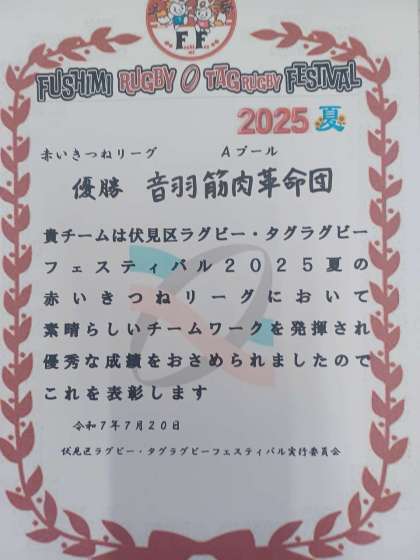 F F
FUSHIMI RUGBY O TAG RUGBY FESTIVAL
2025 夏
赤いきつねリーグ Aプール
優勝 音羽筋肉革命団
貴チームは伏見区ラグビー・タグラグビー
フェスティバル2025夏の
赤いきつねリーグにおいて
素晴らしいチームワークを発揮され
優秀な成績をおさめられましたので
これを表彰します
令和7年7月20日
伏見区ラグビー・タグラグビーフェスティバル実行委員会